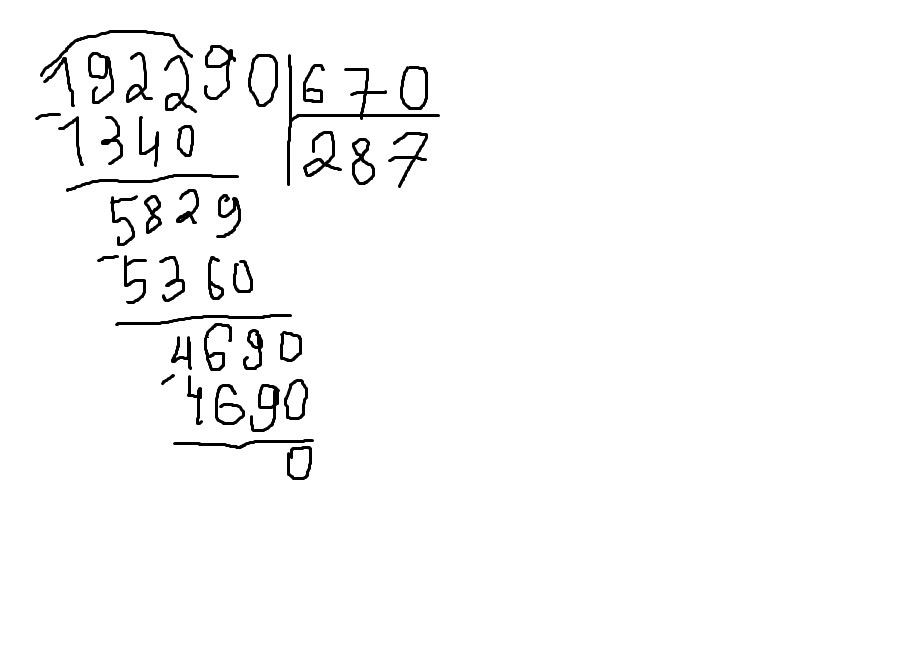 192290 670
- 1340 287
5829
- 5360
4690
- 4690
0